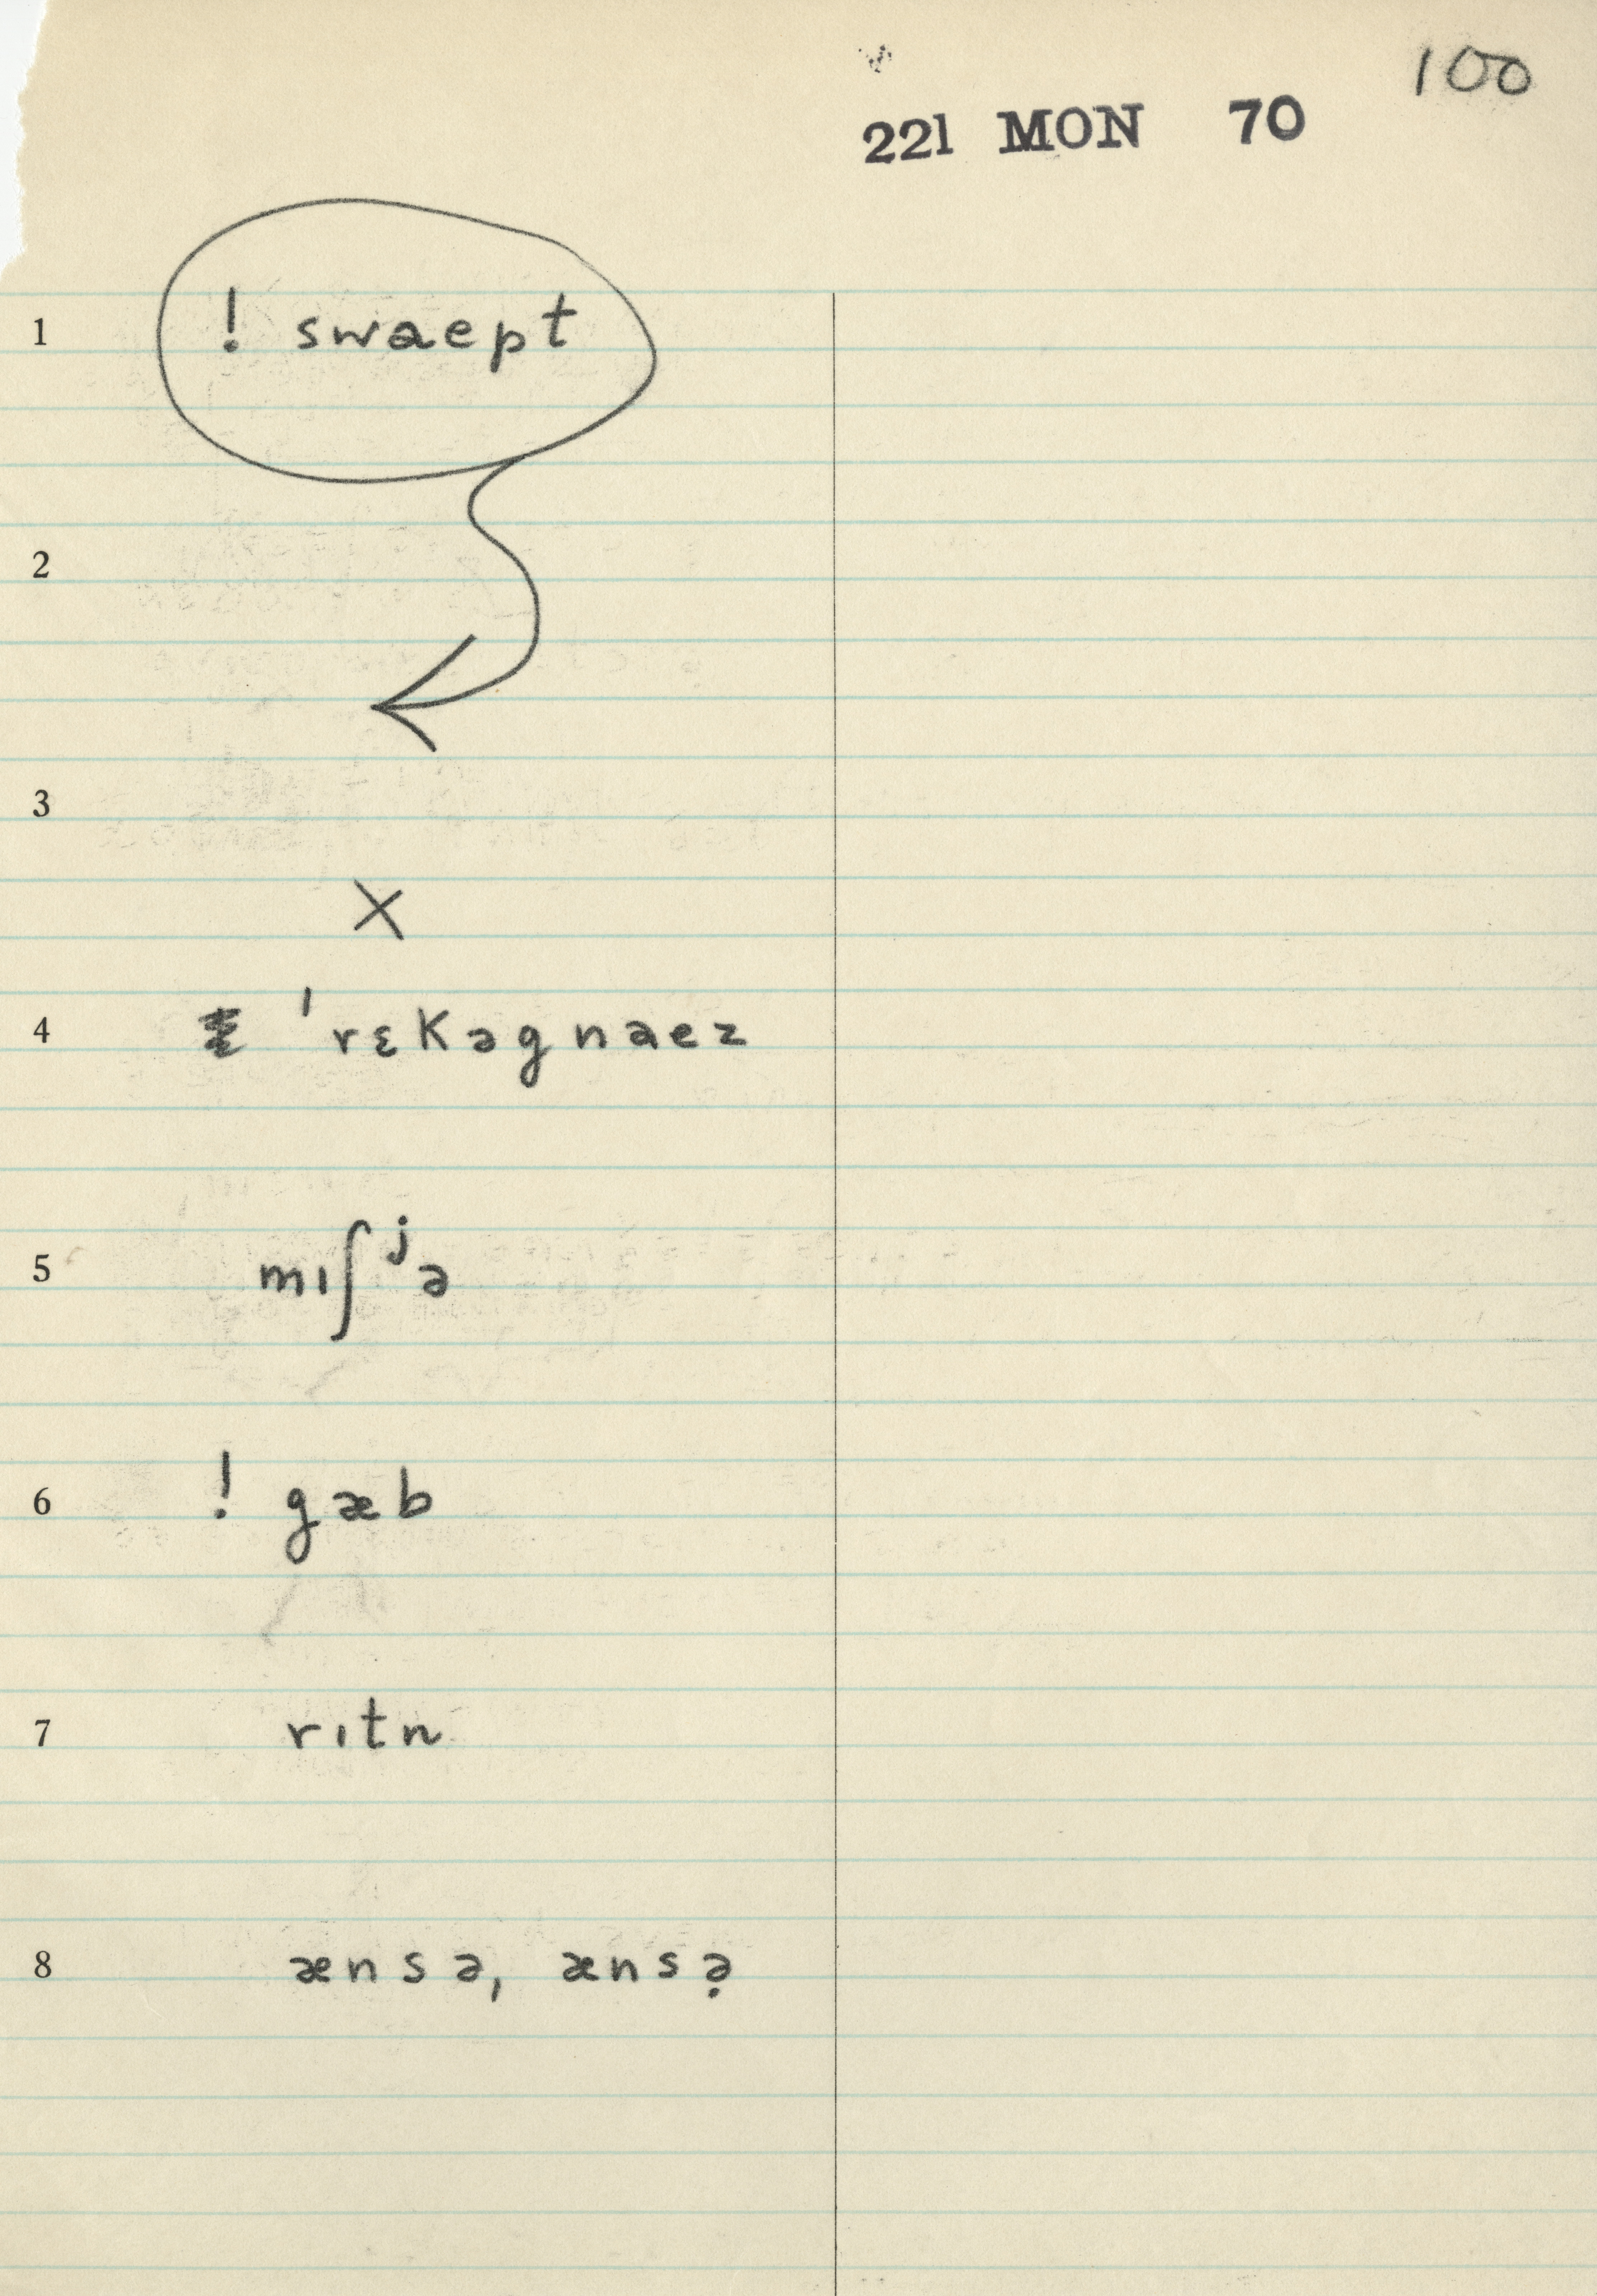 100
221 MON 70
1 ! swaept
2
3
X
4 ˈrɛkəgnaez
5 mɪʃʲə
6 ! gæb
7 rɪtn
8 ænsə, ænsə̣